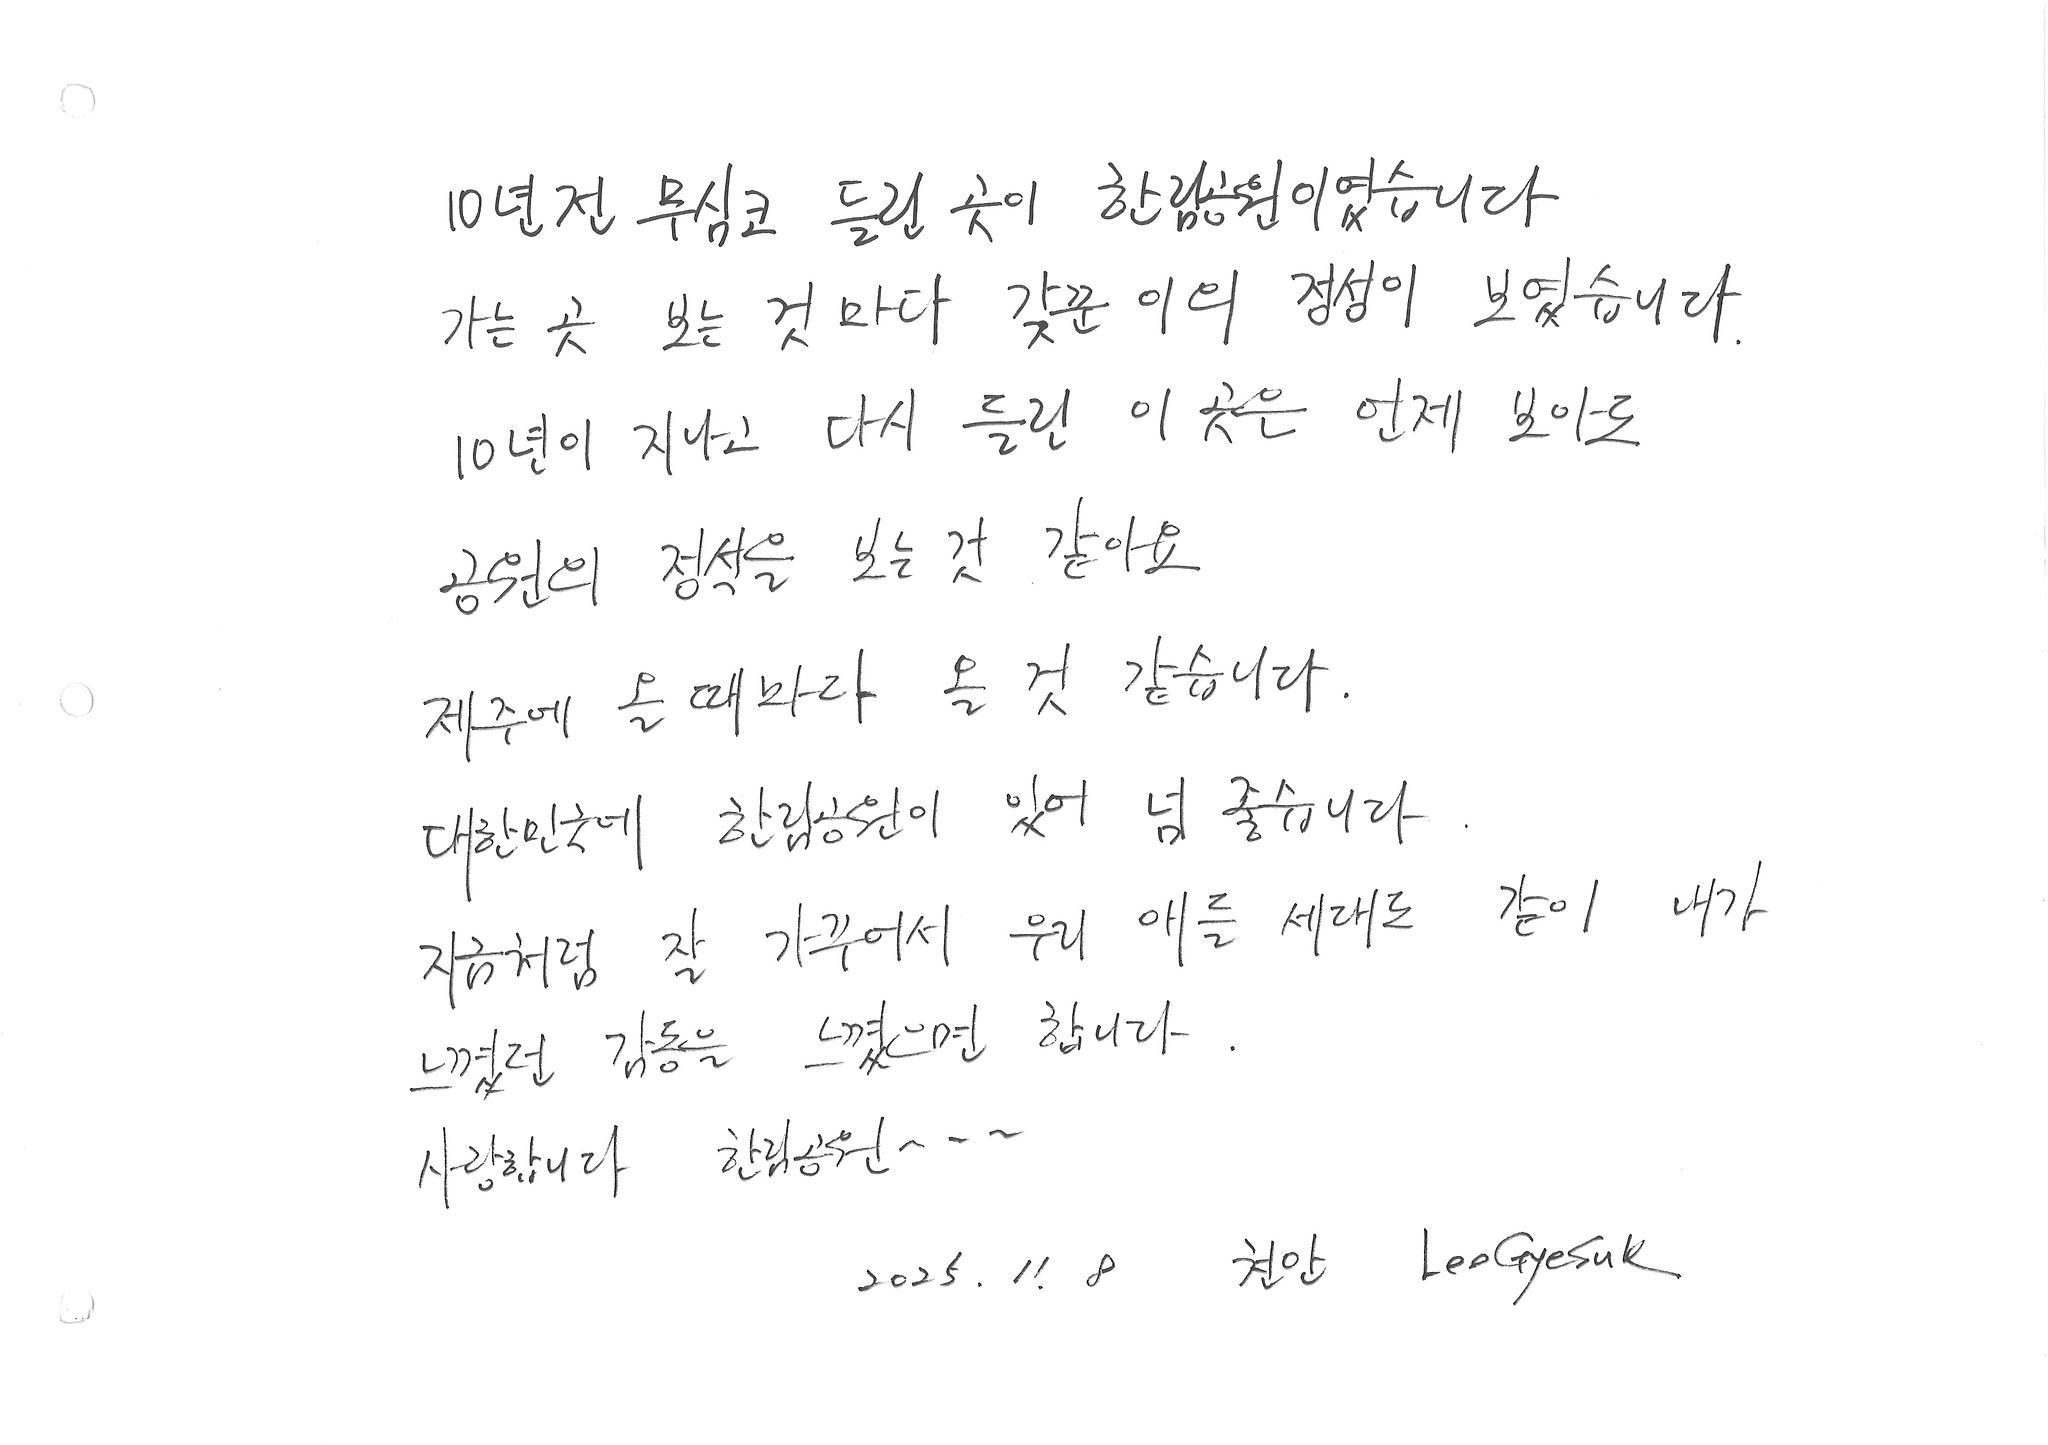 10년전 무심코 들린 곳이 한림공원이였습니다
가는 곳 보는 것마다 갖꾼 이의 정성이 보였습니다.
10년이 지나고 다시 들린 이 곳은 언제 보아도
공원의 정석을 보는 것 같아요
제주에 올때마다 올 것 같습니다.
대한민국에 한림공원이 있어 넘 좋습니다.
지금처럼 잘 가꾸어서 우리 애들 세대도 같이 내가
느꼈던 감동을 느꼈으면 합니다.
사랑합니다 한림공원~~~
2025. 11. 8 천안 LeeGyeSuk